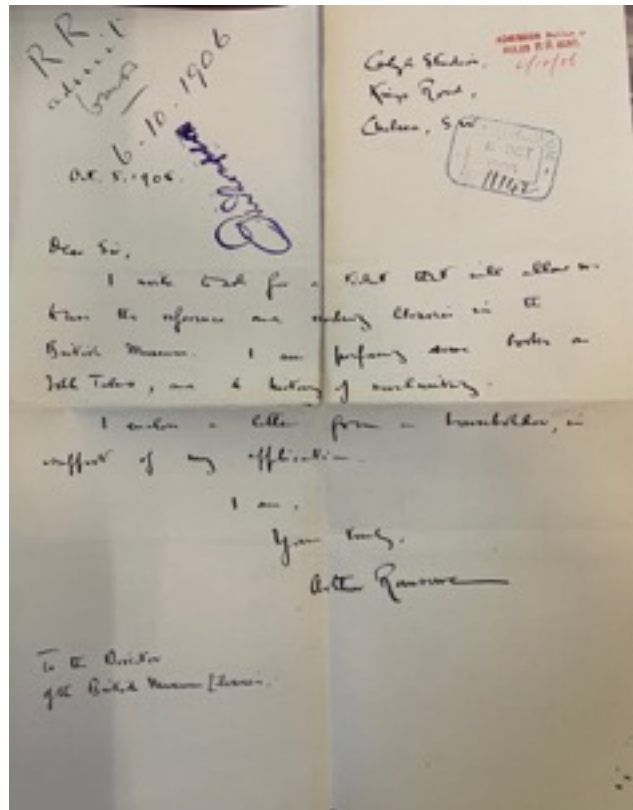 R.R.
admit
6.10.1906
Studios,
King's Road,
Chelsea, S.W.
ADMISSION
6/10/06
OCT
Oct. 5. 1906.
Dear Sir,
I write to ask for a ticket that will allow me
to use the reference and reading libraries in the
British Museum. I am preparing some books on
Folk Tales, and a history of
I enclose a letter from a householder, in
support of my application.
I am,
Yours truly,
Arthur Ransome
To the Director
of the British Museum Libraries.